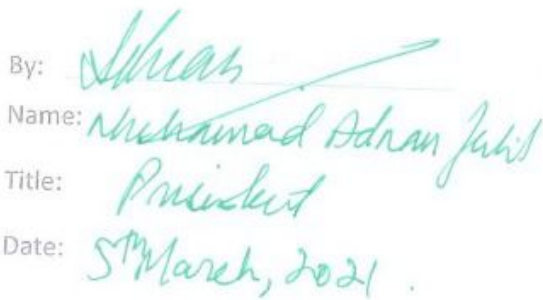 By: Adnan
Name: Muhammad Adnan
Title: President
Date: 5th March, 2021.